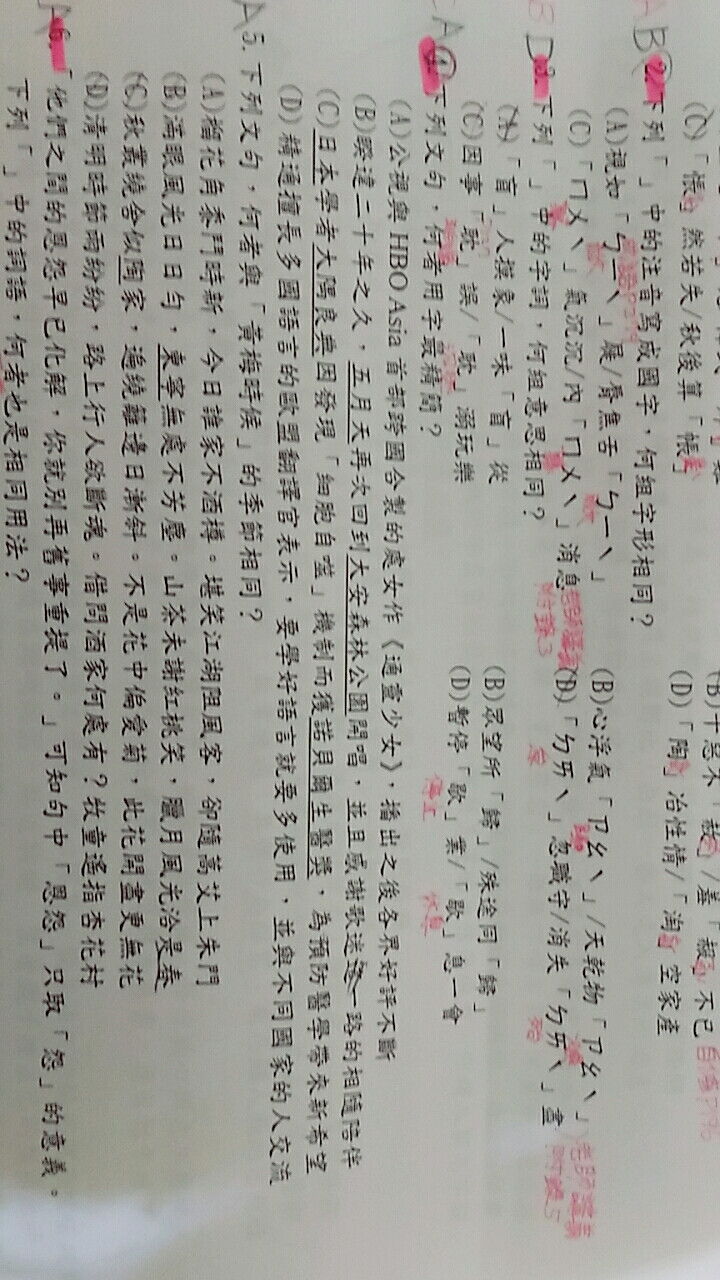 (C)「悵」然若失/秋後算「帳」
(D)「陶」冶性情/「淘」空家產
2. 下列「 」中的注音寫成國字，何組字形相同？
(A)視如「ㄅㄧˋ」屣/脣焦舌「ㄅㄧˋ」
(B)心浮氣「ㄗㄠˋ」/天乾物「ㄗㄠˋ」
(C)「ㄇㄨˋ」氣沉沉/內「ㄇㄨˋ」消息
(D)「ㄉㄞˋ」忽職守/消失「ㄉㄞˋ」盡
3. 下列「 」中的字詞，何組意思相同？
(A)「盲」人摸象/一味「盲」從
(B)眾望所「歸」/殊途同「歸」
(C)因事「耽」誤/「耽」溺玩樂
(D)暫停「歇」業/「歇」息一會
4. 下列文句，何者用字最精簡？
(A)公視與HBO Asia首部跨國合製的處女作《通靈少女》，播出之後各界好評不斷
(B)睽違二十年之久，五月天再次回到大安森林公園開唱，並且感謝歌迷一路的相隨陪伴
(C)日本學者大隅良典因發現「細胞自噬」機制而獲諾貝爾生醫獎，為預防醫學帶來新希望
(D)精通擅長多國語言的歐盟翻譯官表示，要學好語言就要多使用，並與不同國家的人交流
A5. 下列文句，何者與「黃梅時候」的季節相同？
(A)榴花角黍鬥時新，今日誰家不酒樽。堪笑江湖阻風客，卻隨蒿艾上朱門
(B)滿眼風光日日勻，東寧無處不芳塵。山茶未謝紅桃笑，臘月風光洽是春
(C)秋叢繞舍似陶家，遍繞籬邊日漸斜。不是花中偏愛菊，此花開盡更無花
(D)清明時節雨紛紛，路上行人欲斷魂。借問酒家何處有？牧童遙指杏花村
6.「他們之間的恩怨早已化解，你就別再舊事重提了。」可知句中「恩怨」只取「怨」的意義。
下列「 」中的詞語，何者也是相同用法？